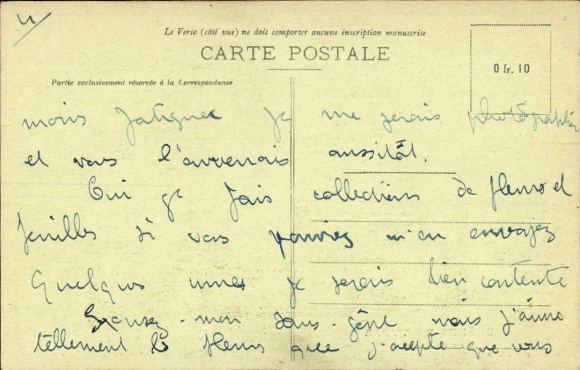 4/
Le Verso (côté vue) ne doit comporter aucune inscription manuscrite
CARTE POSTALE
0 fr. 10
Partie exclusivement réservée à la Correspondance
moins fatiguée je me ferais photographier
et vous l'enverrais aussitôt.
Oui je fais collections de fleurs et
feuilles si vous pouviez m'en envoyez
quelques unes je serais bien contente
Excusez-mon sans-gêne mais j'aime
tellement les fleurs que j'accepte que vous